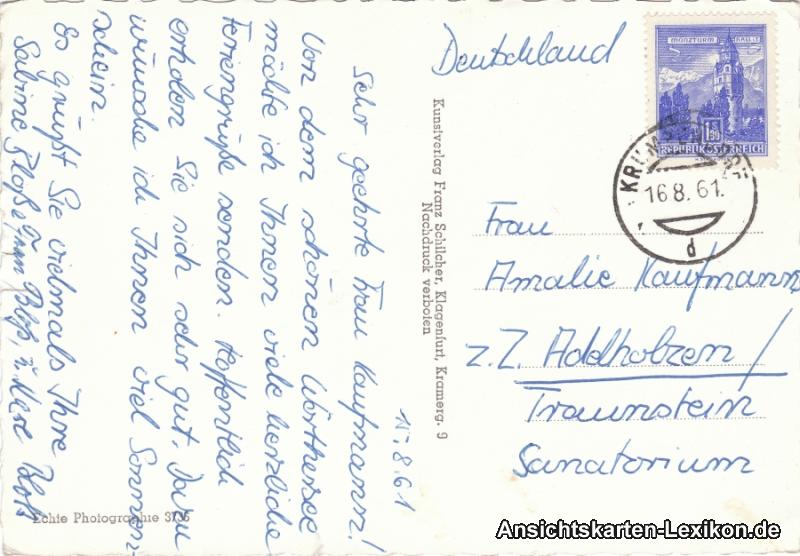 15.8.61
Sehr geehrte Frau Kaufmann!
Von dem schönen Wörthersee
möchte ich Ihnen viele herzliche
Feriengrüße senden. Hoffentlich
erholen Sie sich sehr gut. Dazu
wünsche ich Ihnen viel Sonnen-
schein.
Es grüßt Sie vielmals Ihre
Sabine Frau
Echte Photographie 3735
Kunstverlag Franz Schilcher, Klagenfurt, Kramerg. 9
Nachdruck verboten
Deutschland
MÜNZTURM HALL I.T.
S 1.50
REPUBLIK ÖSTERREICH
16.8.61.
d
Frau
Amalie Kaufmann
z.Z. Adelholzen/
Traunstein
Sanatorium
Ansichtskarten-Lexikon.de